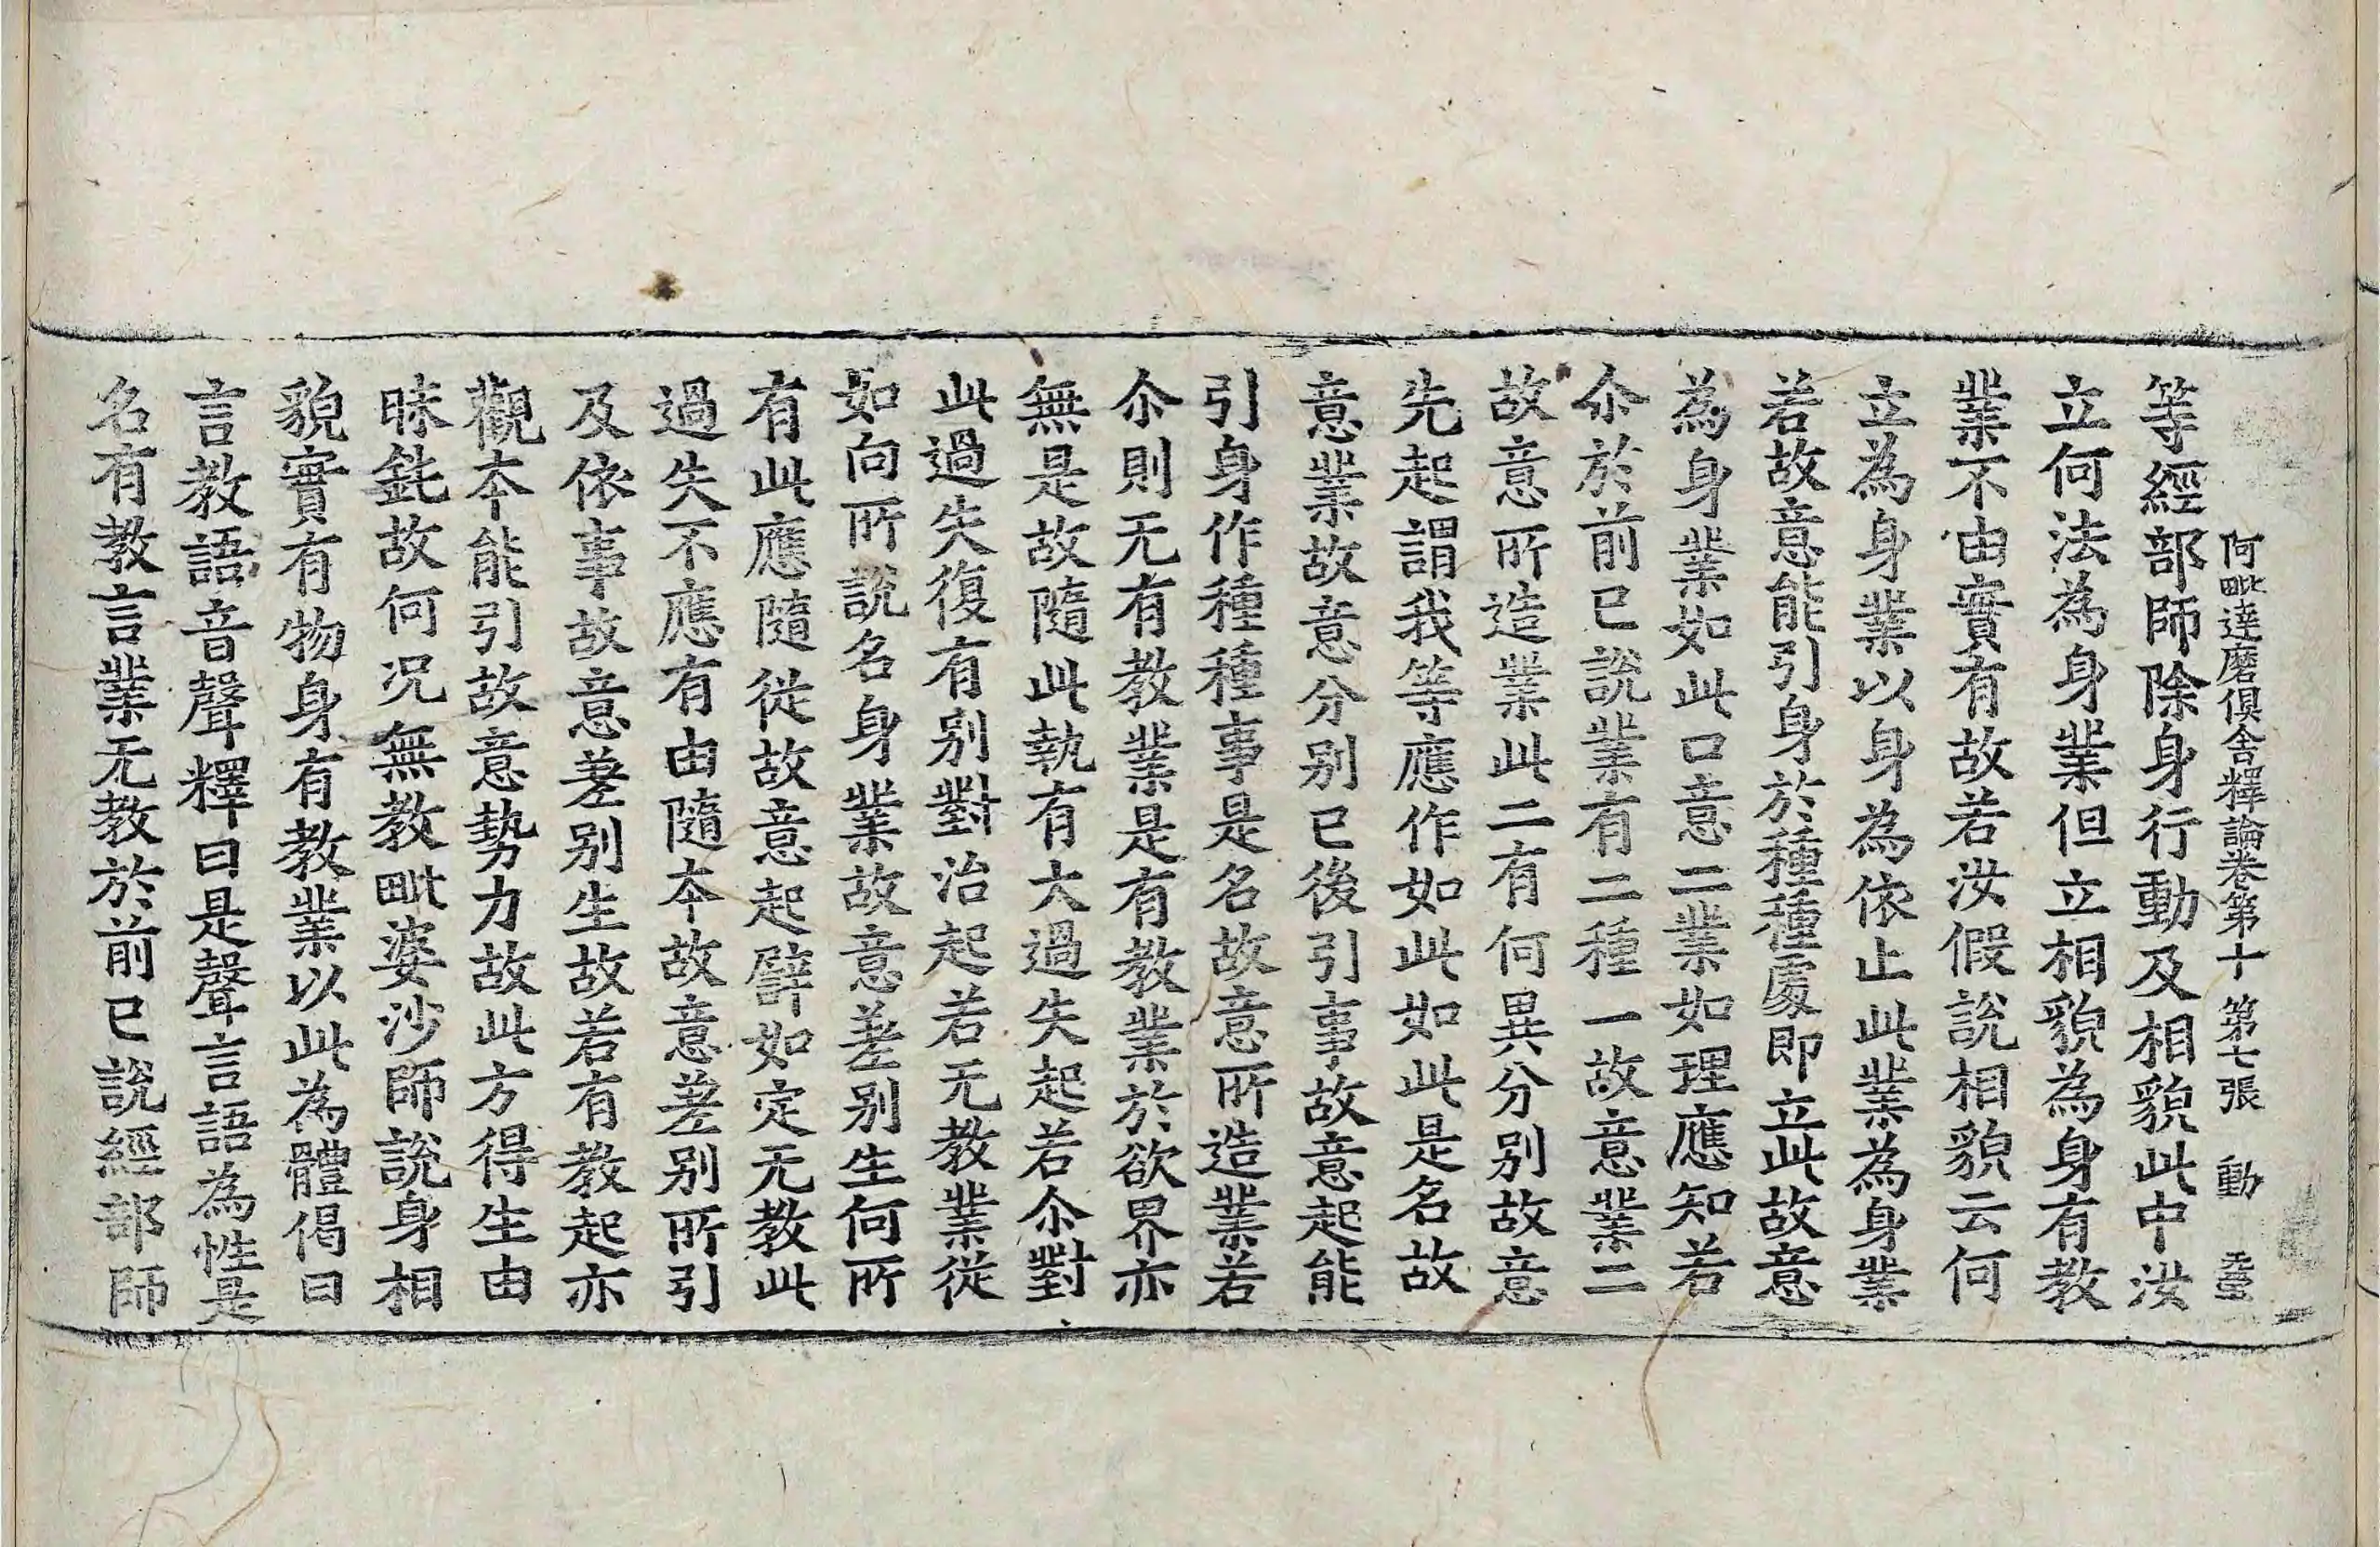 阿毗達磨俱舍釋論卷第十 第七張 動
等經部師除身行動及相貌此中汝
立何法為身業但立相貌為身有教
業不由實有故若汝假說相貌云何
立為身業以身為依止此業為身業
若故意能引身於種種處即立此故意
為身業如此口意二業如理應知若
尒於前已說業有二種一故意業二
故意所造業此二有何異分別故意
先起謂我等應作如此如此是名故
意業故意分別已後引事故意起能
引身作種種事是名故意所造業若
尒則无有教業是有教業於欲界亦
無是故隨此執有大過失起若尒對
此過失復有別對治起若无教業從
如向所說名身業故意差別生何所
有此應隨從故意起譬如定无教此
過失不應有由隨本故意差別所引
及依事故意差別生故若有教起亦
觀本能引故意勢力故此方得生由
昧鈍故何況無教毗婆沙師說身相
貌實有物身有教業以此為體偈曰
言教語音聲釋曰是聲言語為性是
名有教言業无教於前已說經部師